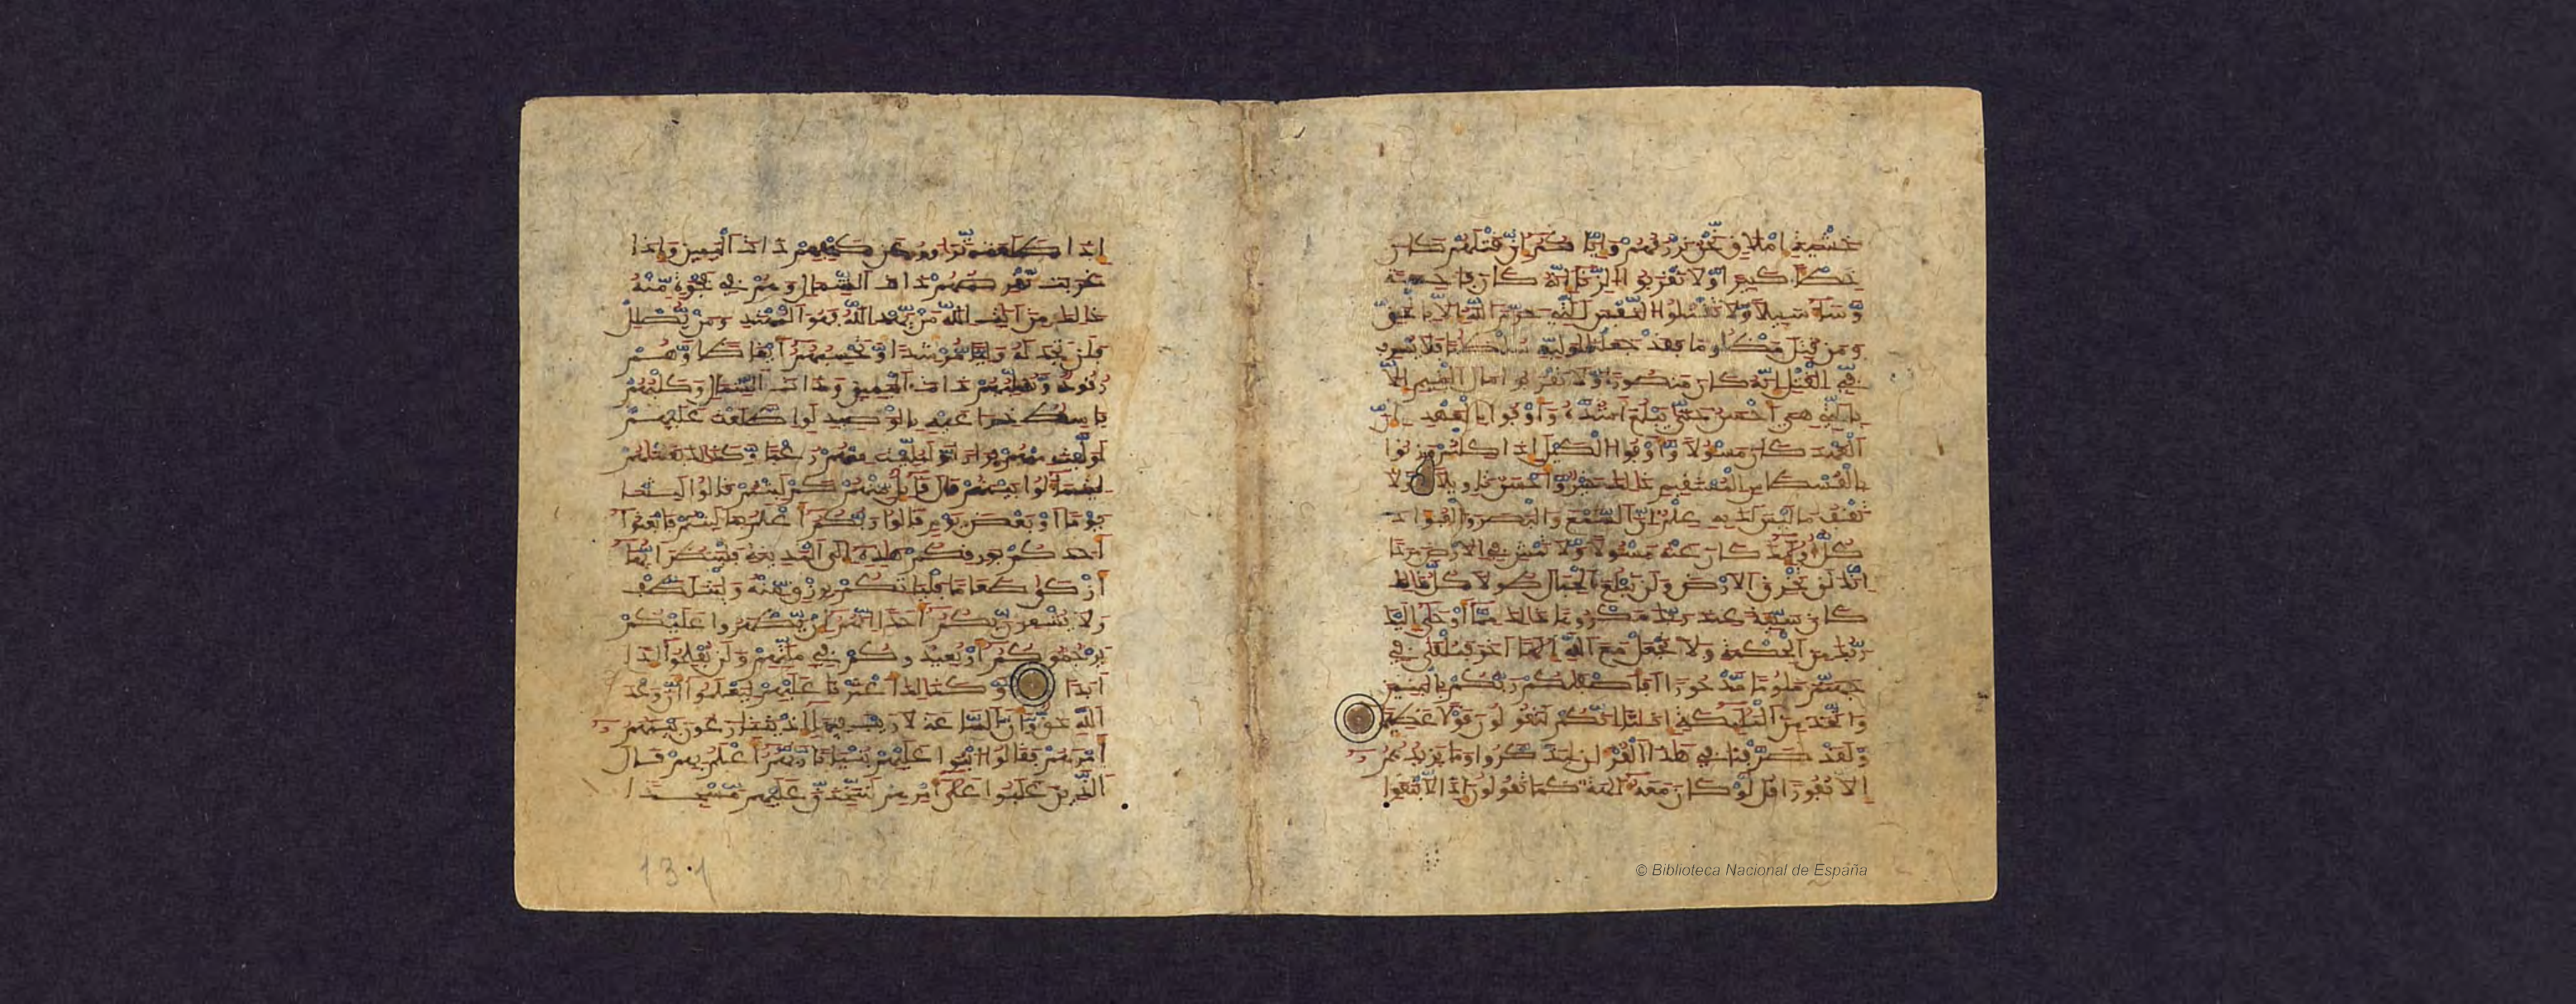 خَشْيَةَ إِمْلَٰقٍ نَّحْنُ نَرْزُقُهُمْ وَإِيَّاكُمْ إِنَّ قَتْلَهُمْ كَانَ
خِطْـًٔا كَبِيرًا وَلَا تَقْرَبُوا الزِّنَىٰ إِنَّهُ كَانَ فَٰحِشَةً
وَسَآءَ سَبِيلًا وَلَا تَقْتُلُوا النَّفْسَ الَّتِي حَرَّمَ اللَّهُ إِلَّا بِالْحَقِّ
وَمَن قُتِلَ مَظْلُومًا فَقَدْ جَعَلْنَا لِوَلِيِّهِ سُلْطَٰنًا فَلَا يُسْرِف
فِّي الْقَتْلِ إِنَّهُ كَانَ مَنصُورًا وَلَا تَقْرَبُوا مَالَ الْيَتِيمِ إِلَّا
بِالَّتِي هِيَ أَحْسَنُ حَتَّىٰ يَبْلُغَ أَشُدَّهُ وَأَوْفُوا بِالْعَهْدِ إِنَّ
الْعَهْدَ كَانَ مَسْـُٔولًا وَأَوْفُوا الْكَيْلَ إِذَا كِلْتُمْ وَزِنُوا
بِالْقُسْطَاسِ الْمُسْتَقِيمِ ذَٰلِكَ خَيْرٌ وَأَحْسَنُ تَأْوِيلًا وَلَا
تَقْفُ مَا لَيْسَ لَكَ بِهِ عِلْمٌ إِنَّ السَّمْعَ وَالْبَصَرَ وَالْفُؤَادَ
كُلُّ أُولَٰٓئِكَ كَانَ عَنْهُ مَسْـُٔولًا وَلَا تَمْشِ فِي الْأَرْضِ مَرَحًا
إِنَّكَ لَن تَخْرِقَ الْأَرْضَ وَلَن تَبْلُغَ الْجِبَالَ طُولًا كُلُّ ذَٰلِكَ
كَانَ سَيِّئَةً عِندَ رَبِّكَ مَكْرُوهًا ذَٰلِكَ مِمَّآ أَوْحَىٰٓ إِلَيْكَ
رَبُّكَ مِنَ الْحِكْمَةِ وَلَا تَجْعَلْ مَعَ اللَّهِ إِلَٰهًا آخَرَ فَتُلْقَىٰ فِي
جَهَنَّمَ مَلُومًا مَّدْحُورًا أَفَأَصْفَىٰكُمْ رَبُّكُم بِالْبَنِينَ
وَاتَّخَذَ مِنَ الْمَلَٰٓئِكَةِ إِنَٰثًا إِنَّكُمْ لَتَقُولُونَ قَوْلًا عَظِيمًا
وَلَقَدْ صَرَّفْنَا فِي هَٰذَا الْقُرْآنِ لِيَذَّكَّرُوا وَمَا يَزِيدُهُمْ
إِلَّا نُفُورًا قُل لَّوْ كَانَ مَعَهُ آلِهَةٌ كَمَا تَقُولُونَ إِذًا لَّابْتَغَوْا
إِذَا طَلَعَت تَّزَّاوَرُ عَن كَهْفِهِمْ ذَاتَ الْيَمِينِ وَإِذَا
غَرَبَت تَّقْرِضُهُمْ ذَاتَ الشِّمَالِ وَهُمْ فِي فَجْوَةٍ مِّنْهُ
ذَٰلِكَ مِنْ آيَٰتِ اللَّهِ مَن يَهْدِ اللَّهُ فَهُوَ الْمُهْتَدِ وَمَن يُضْلِلْ
فَلَن تَجِدَ لَهُ وَلِيًّا مُّرْشِدًا وَتَحْسِبُهُمْ أَيْقَاظًا وَهُمْ
رُقُودٌ وَنُقَلِّبُهُمْ ذَاتَ الْيَمِينِ وَذَاتَ الشِّمَالِ وَكَلْبُهُم
بَٰسِطٌ ذِرَاعَيْهِ بِالْوَصِيدِ لَوِ اطَّلَعْتَ عَلَيْهِمْ
لَوَلَّيْتَ مِنْهُمْ فِرَارًا وَلَمُلِّئْتَ مِنْهُمْ رُعْبًا وَكَذَٰلِكَ بَعَثْنَٰهُمْ
لِيَتَسَآءَلُوا بَيْنَهُمْ قَالَ قَآئِلٌ مِّنْهُمْ كَمْ لَبِثْتُمْ قَالُوا لَبِثْنَا
يَوْمًا أَوْ بَعْضَ يَوْمٍ قَالُوا رَبُّكُمْ أَعْلَمُ بِمَا لَبِثْتُمْ فَابْعَثُوٓا
أَحَدَكُم بِوَرِقِكُمْ هَٰذِهِ إِلَى الْمَدِينَةِ فَلْيَنظُرْ أَيُّهَآ
أَزْكَىٰ طَعَامًا فَلْيَأْتِكُم بِرِزْقٍ مِّنْهُ وَلْيَتَلَطَّفْ
وَلَا يُشْعِرَنَّ بِكُمْ أَحَدًا إِنَّهُمْ إِن يَظْهَرُوا عَلَيْكُمْ
يَرْجُمُوكُمْ أَوْ يُعِيدُوكُمْ فِي مِلَّتِهِمْ وَلَن تُفْلِحُوٓا إِذًا
أَبَدًا وَكَذَٰلِكَ أَعْثَرْنَا عَلَيْهِمْ لِيَعْلَمُوٓا أَنَّ وَعْدَ
اللَّهِ حَقٌّ وَأَنَّ السَّاعَةَ لَا رَيْبَ فِيهَآ إِذْ يَتَنَٰزَعُونَ بَيْنَهُمْ
أَمْرَهُمْ فَقَالُوا ابْنُوا عَلَيْهِم بُنْيَٰنًا رَّبُّهُمْ أَعْلَمُ بِهِمْ قَالَ
الَّذِينَ غَلَبُوا عَلَىٰٓ أَمْرِهِمْ لَنَتَّخِذَنَّ عَلَيْهِم مَّسْجِدًا
131
© Biblioteca Nacional de España